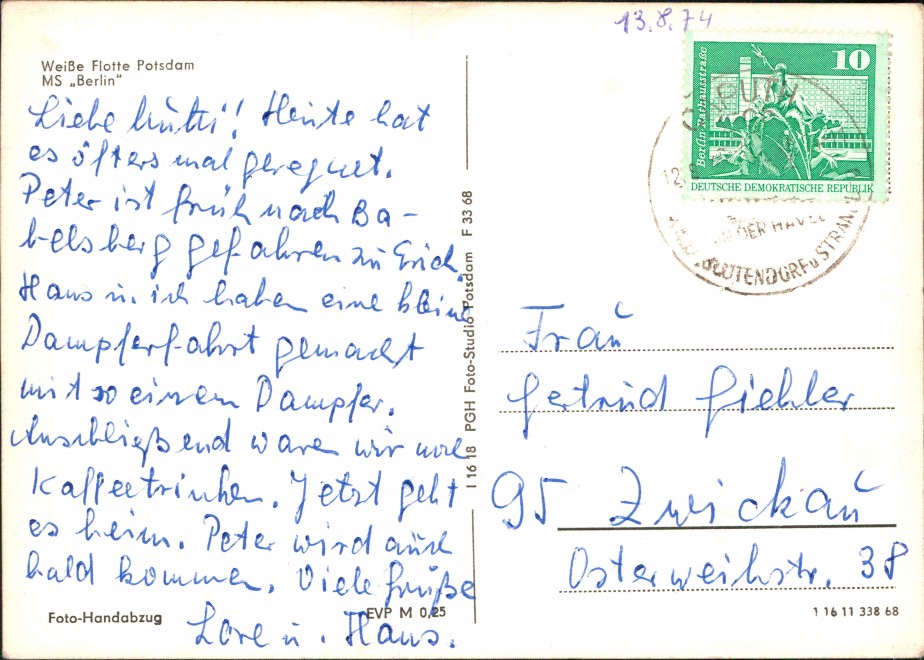 Weiße Flotte Potsdam
MS „Berlin"
Liebe Mutti! Heute hat
es öfters mal geregnet.
Peter ist früh nach Ba-
belsberg gefahren zu Erich.
Hans u. ich haben eine kleine
Dampferfahrt gemacht
mit so einem Dampfer.
Anschließend waren wir noch
Kaffeetrinken. Jetzt geht
es heim. Peter wird auch
bald kommen. Viele Grüße
Lore u. Hans.
Foto-Handabzug
EVP M 0,25
I 16 18 PGH Foto-Studio Potsdam F 33 68
13.8.74
10
Berlin-Rathausstraße
DEUTSCHE DEMOKRATISCHE REPUBLIK
CAPUTH
12.8
AN DER HAVEL
BLÜTENDORF u STRAND
Frau
Gertrud Giehler
95 Zwickau
Osterweihstr. 38
1 16 11 338 68